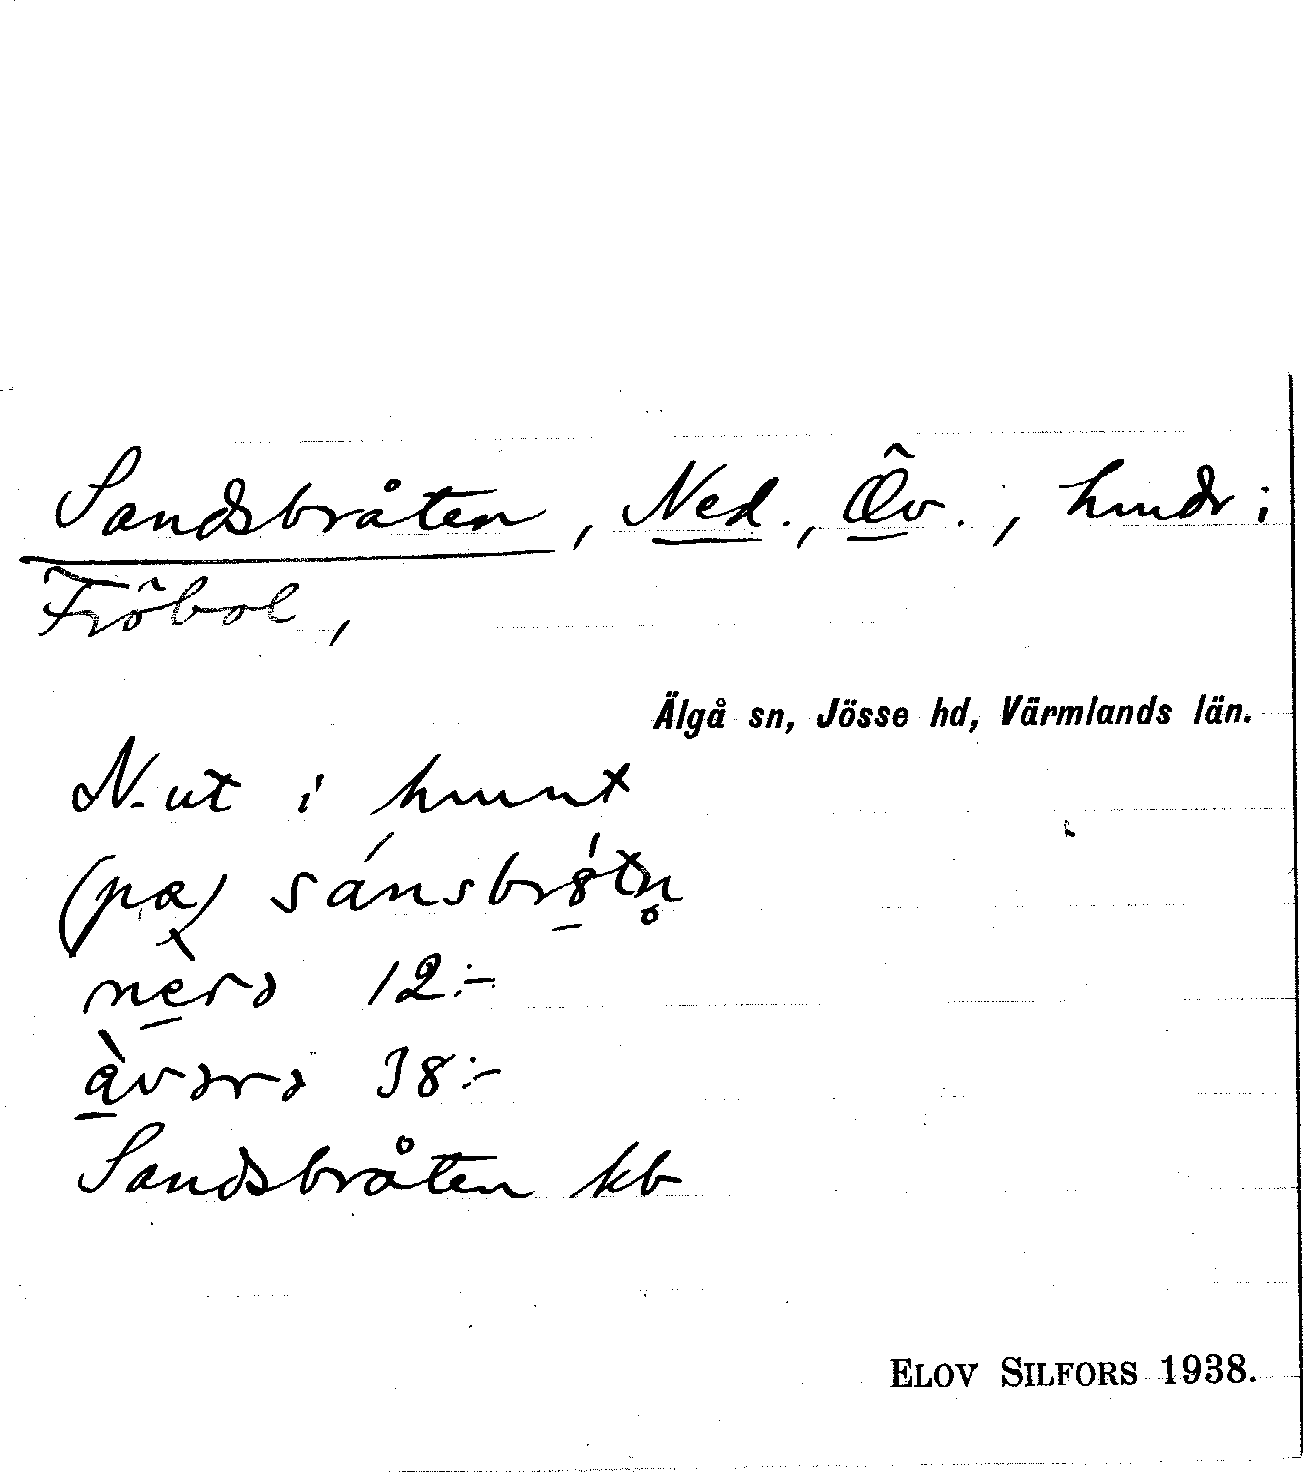 Sandsbråten, Ned., Öv., hmdr i
Fröbol,
Älgå sn, Jösse hd, Värmlands län.
N. ut i hmnt
(pa) sánsbrótn̥
nèrə 12:-
àvərə 38:-
Sandsbråten kb
ELOV SILFORS 1938.